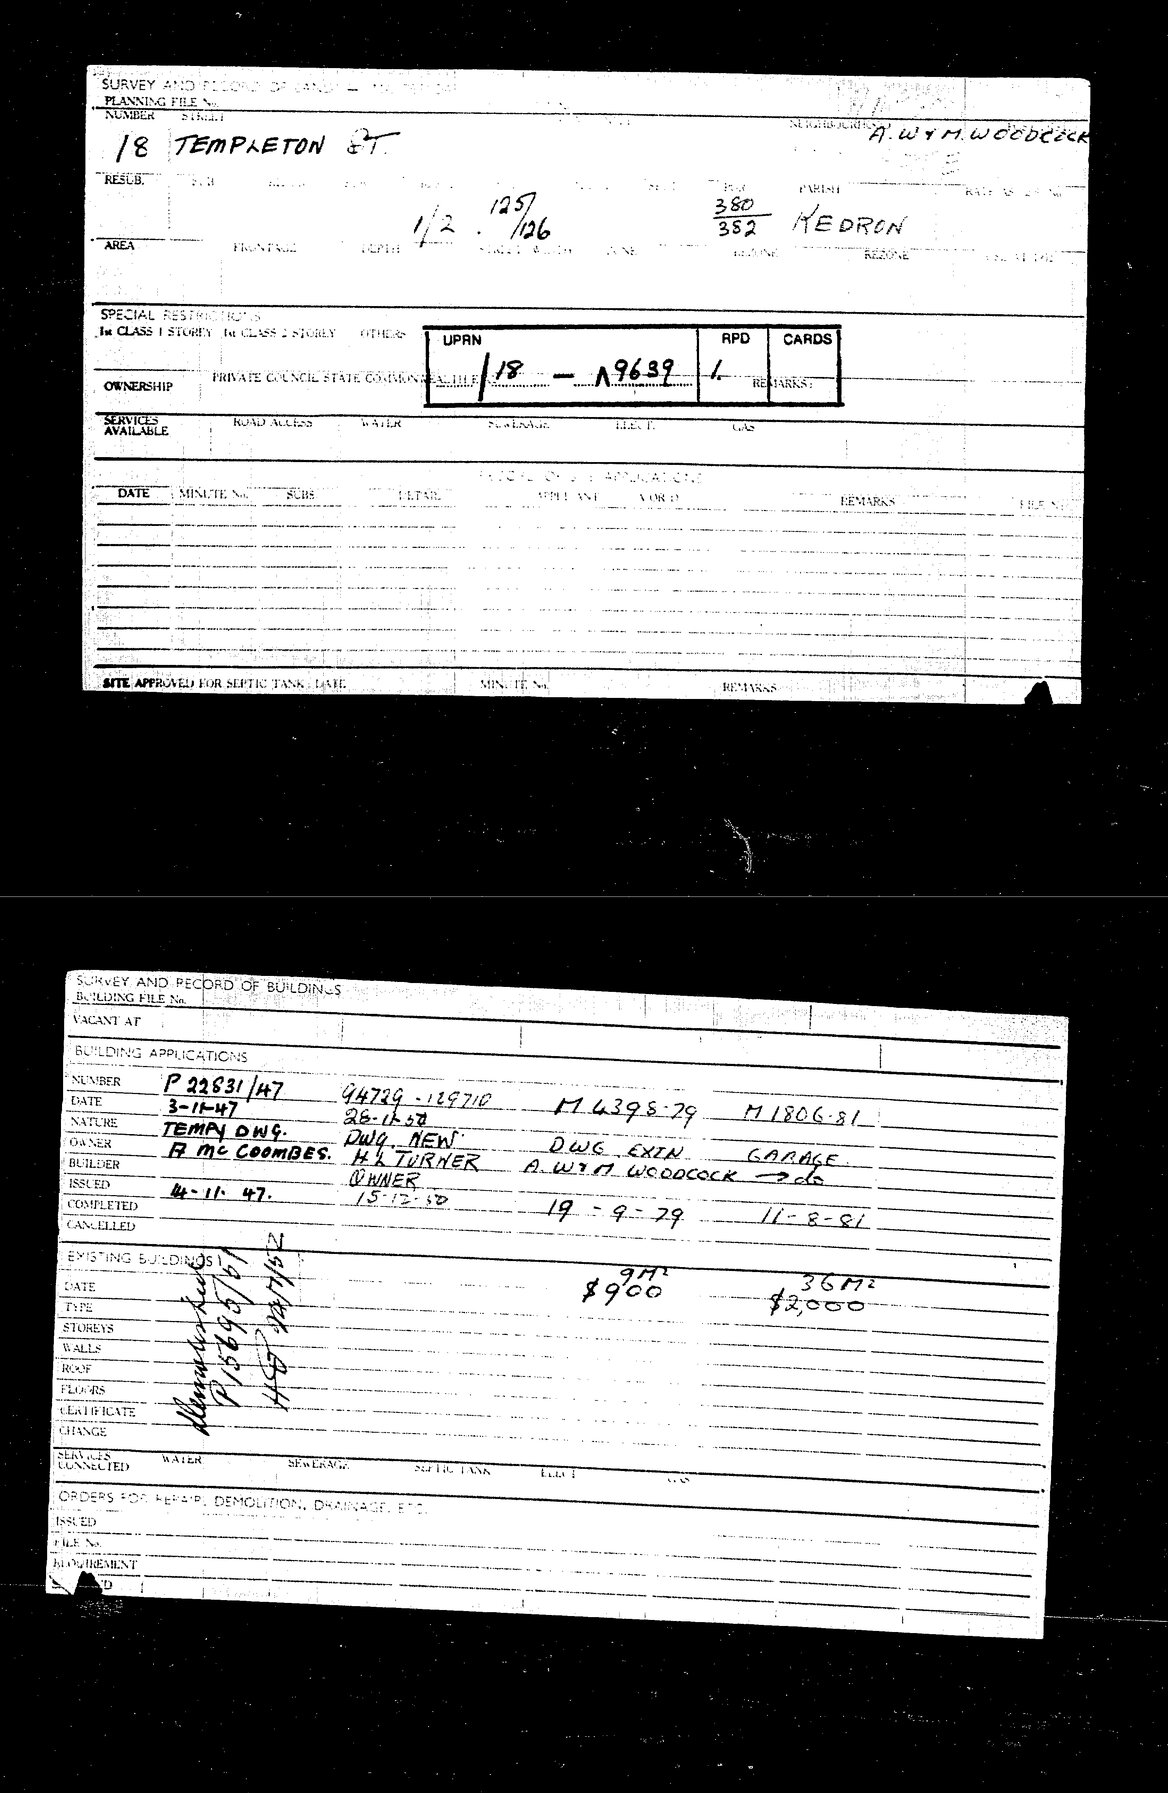 SURVEY AND RECORD OF LAND
PLANNING FILE No.
NUMBER STREET NEIGHBOURHOOD
18 TEMPLETON ST. A. W & M. WOODCOCK
RESUB. SUB PARISH
1/2 . 125/126 380/382 KEDRON
AREA FRONTAGE DEPTH STREET WIDTH ZONE REZONE REZONE
SPECIAL RESTRICTIONS
1st CLASS 1 STOREY 1st CLASS 2 STOREY OTHERS
UPRN RPD CARDS
/18 — 9639 1.
OWNERSHIP PRIVATE COUNCIL STATE COMMONWEALTH REMARKS
SERVICES AVAILABLE ROAD ACCESS WATER SEWERAGE ELECT. GAS
RECORD OF APPLICATIONS
DATE MINUTE No. SUBS. DETAIL APPLICANT A OR D REMARKS FILE No.
SITE APPROVED FOR SEPTIC TANK DATE MINUTE No. REMARKS
SURVEY AND RECORD OF BUILDINGS
BUILDING FILE No.
VACANT AT
BUILDING APPLICATIONS
NUMBER P 22831/47 94729 - 129710 M 4398-79 M 1806-81
DATE 3-11-47 28-11-50
NATURE TEMPY DWG. DWG. NEW DWG EXTN GARAGE
OWNER A MC COOMBES. H L TURNER A. W & M WOODCOCK → do
BUILDER OWNER
ISSUED 14-11-47. 15-12-50
COMPLETED 19-9-79 11-8-81
CANCELLED
EXISTING BUILDINGS 9M² 36M²
DATE $900 $2,000
TYPE
STOREYS
WALLS
ROOF
FLOORS
CERTIFICATE
CHANGE
P15695/51
24/7/52
SERVICES CONNECTED WATER SEWERAGE SEPTIC TANK ELECT GAS
ORDERS FOR REPAIR, DEMOLITION, DRAINAGE, ETC.
ISSUED
FILE No.
REQUIREMENT